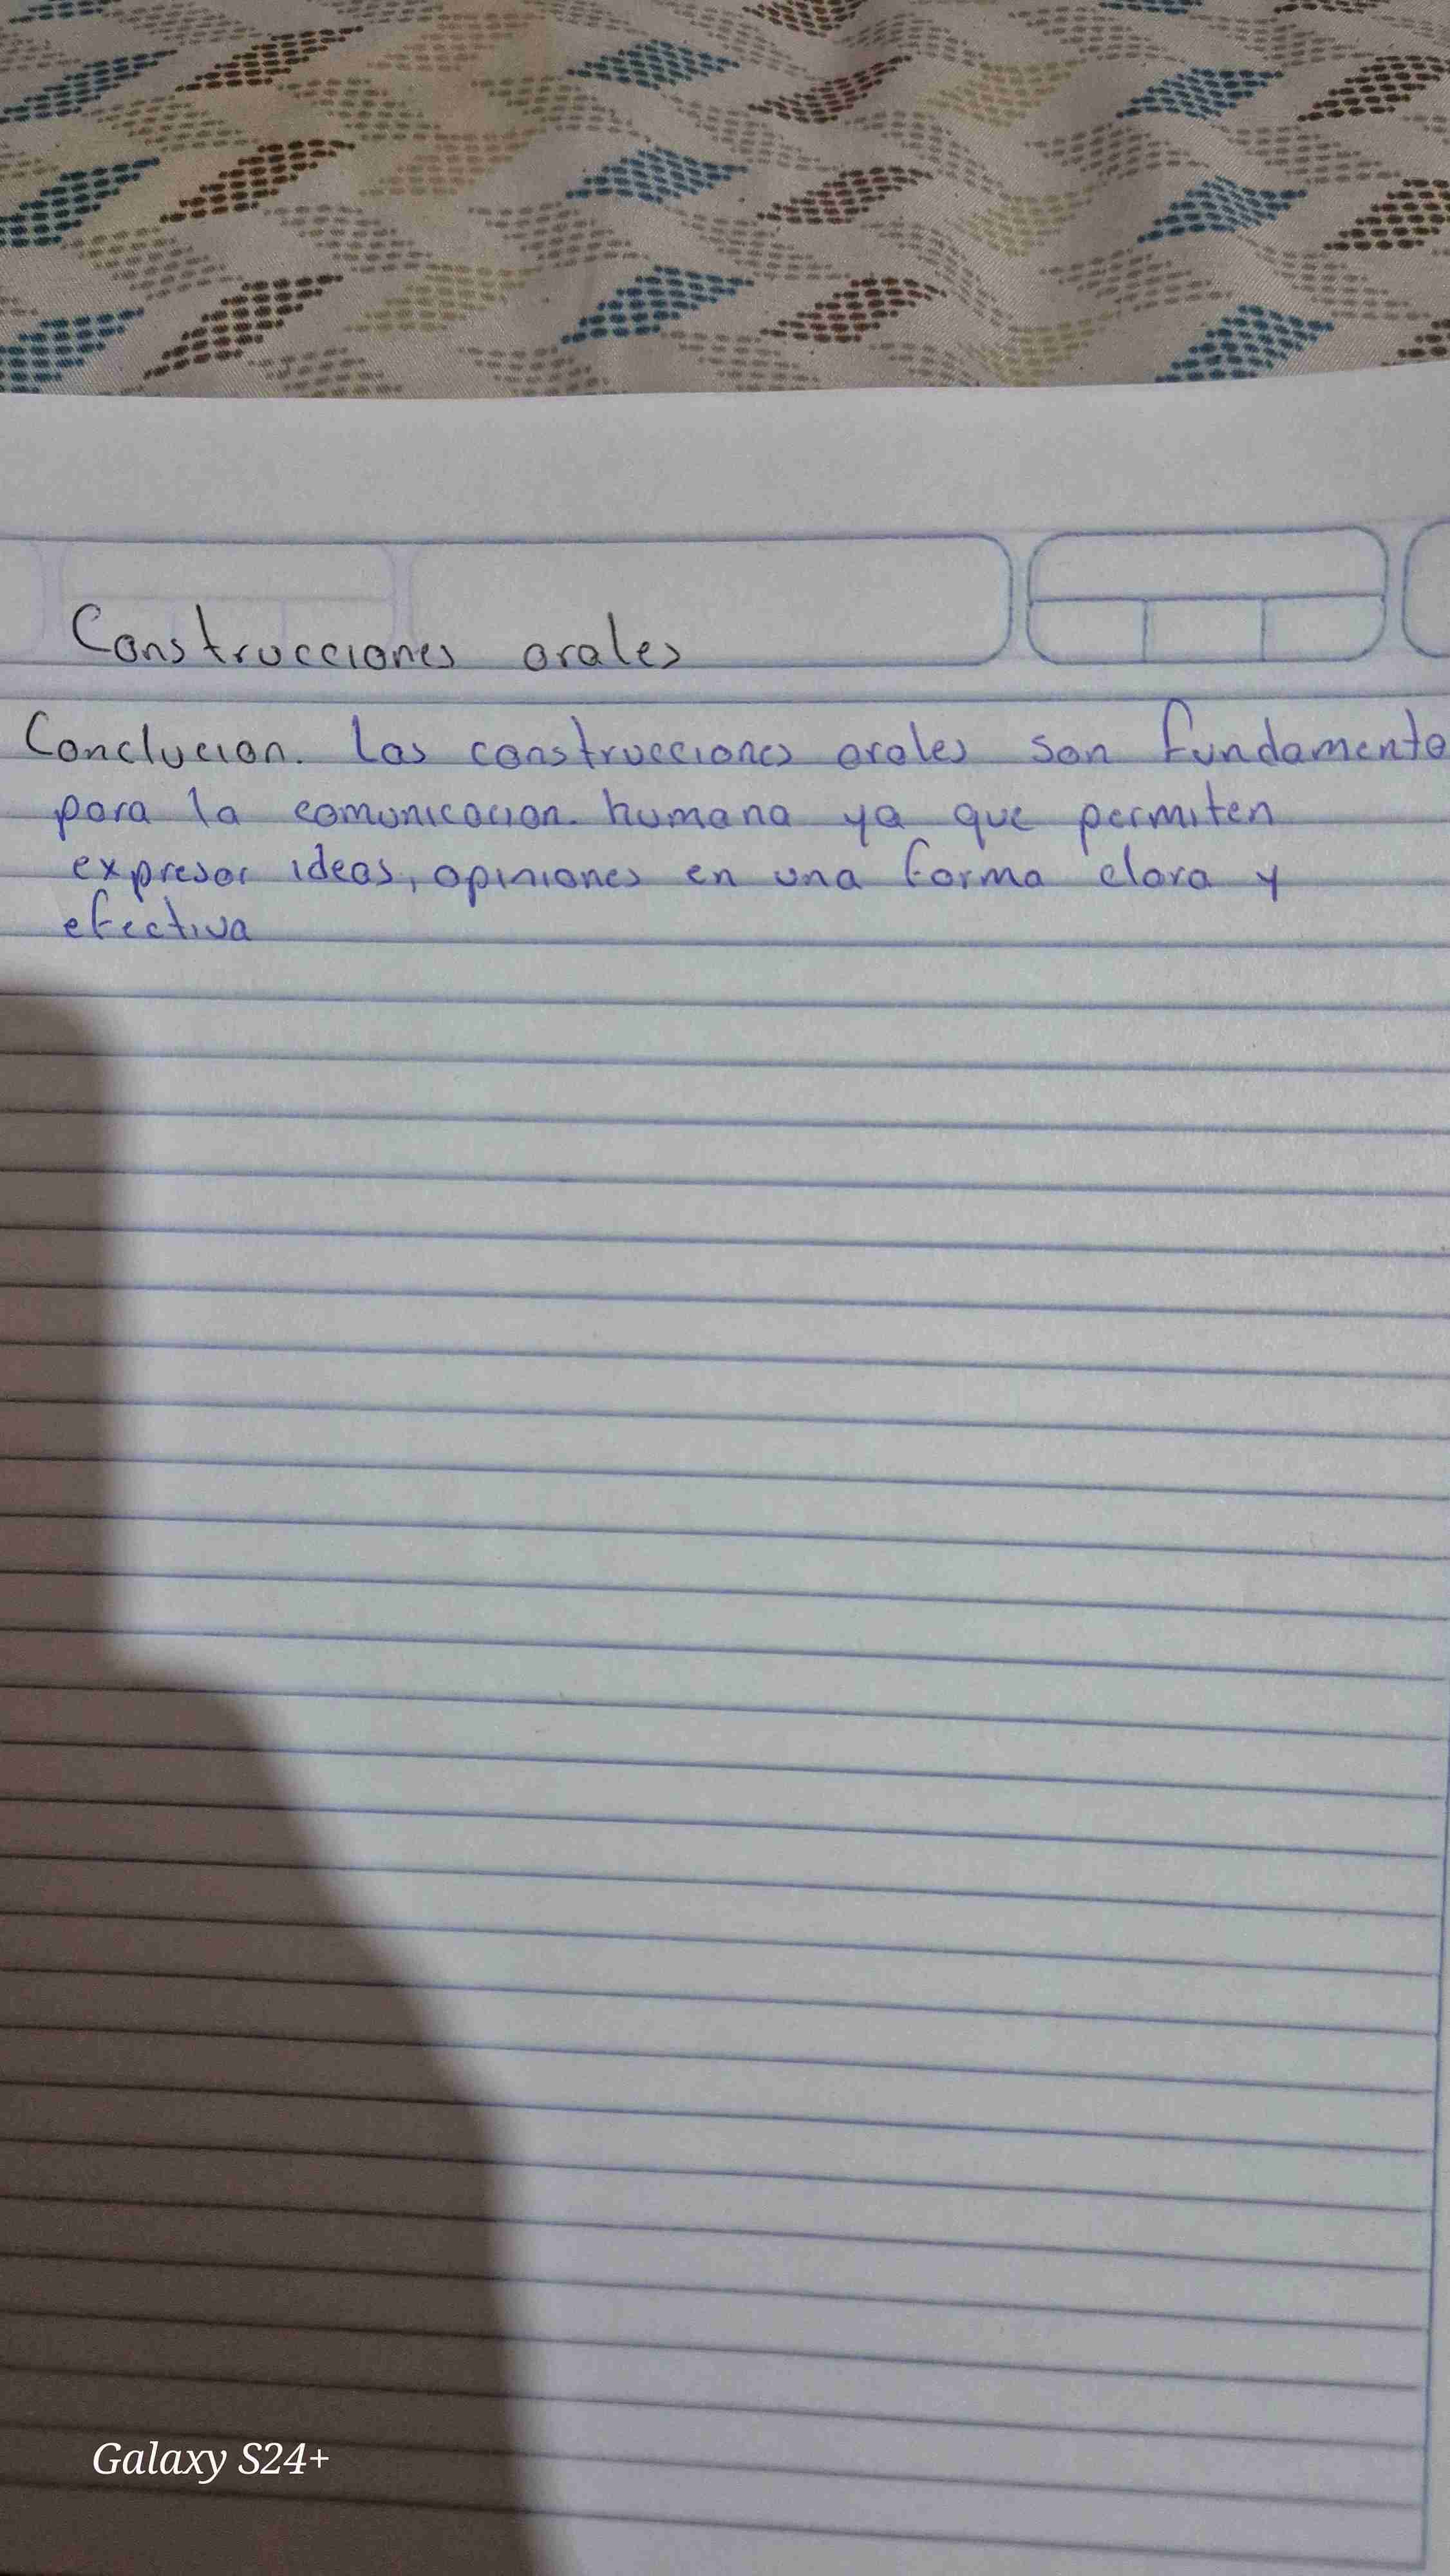 Construcciones orales
Conclucion. Las construcciones orales son fundamento
para la comunicacion. humana ya que permiten
expresar ideas, opiniones en una forma clara y
efectiva
Galaxy S24+